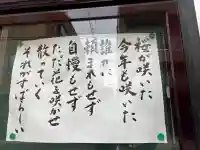 桜が咲いた
今年も咲いた
誰れに
頼まれもせず
自慢もせず
ただ花を咲かせ
散っていく
それがすばらしい